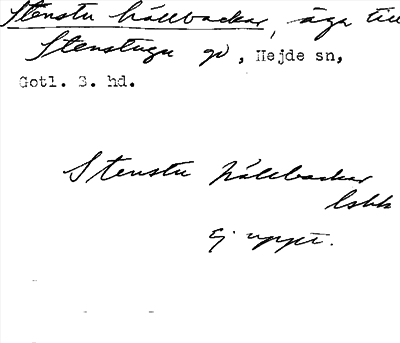 Stenstu hällbackar, äga till
Stenstugu gd, Hejde sn,
Gotl. S. hd.
Stenstu hällbackar
lsbk
Ej uppt.